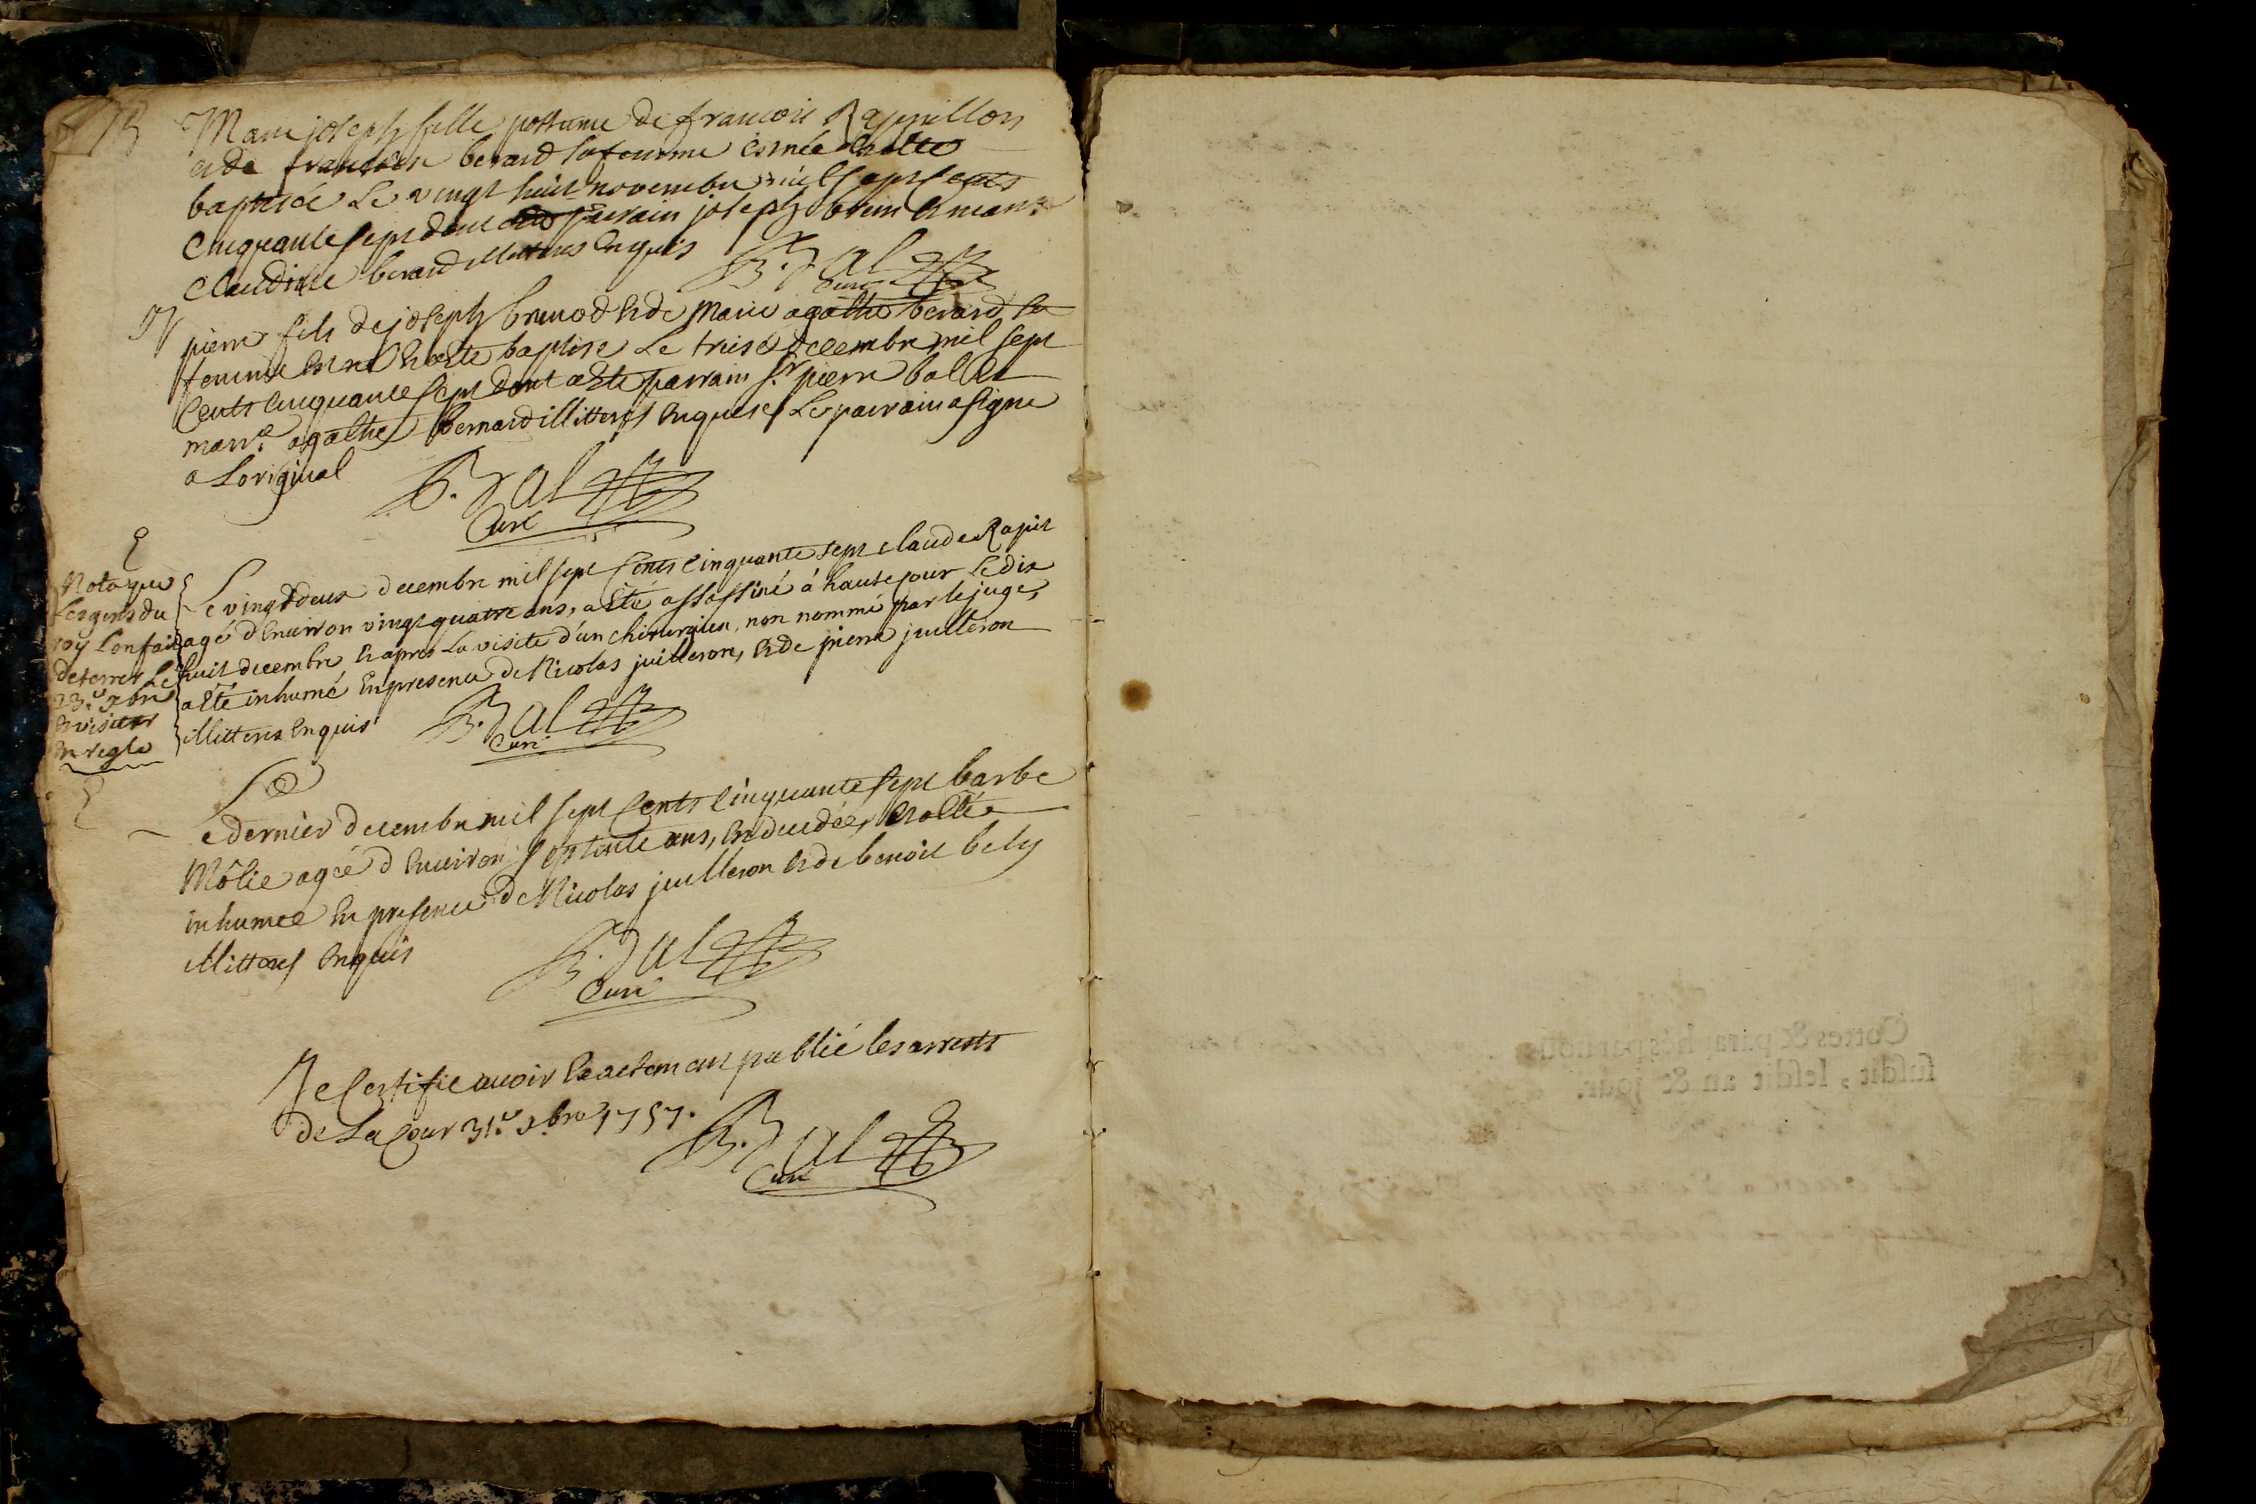 Marie joseph fille postume de francois Rappillon
et de francoise berard sa femme est née et a été
baptisée Le vingt huit novembre mil sept cents
cinquante sept dont parrain joseph brun et marr.e
Claudine berard illitteres enquis B. Dal Curé
pierre fils de joseph brunod et de Marie agathe berard sa
femme est né et a Ete baptisé Le treise decembre mil sept
cents cinquante sept dont a Ete parrain s.r pierre ballet
marr.e agathe bernard illitteres enquises Le parrain a signé
a Loriginal
B. Dal
Curé
Nota que
Les gens du
roy Lon fait
deterrer Le
23.e xbre
et visiter
en regle
Le vingt deux decembre mil sept cents cinquante sept claude Rapit
agé d'Environ vingt quatre ans, a Eté assassiné à hautecour Le dix
huit decembre et apres La visite d'un chirurgien, non nommé par le juge,
a Eté inhumé En presence de Nicolas juilleron, et de pierre juilleron
illitteres enquis B. Dal
Curé
Le dernier decembre mil sept cents cinquante sept barbe
Môlie agée d'Environ septente ans, est decedée, et a Eté
inhumee En presence de Nicolas juilleron et de benoit bely
illitteres enquis
B. Dal
Curé
Je Certifie avoir Exactement publié les arrests
de La Cour 31.e xbre 1757.
B. Dal
Curé